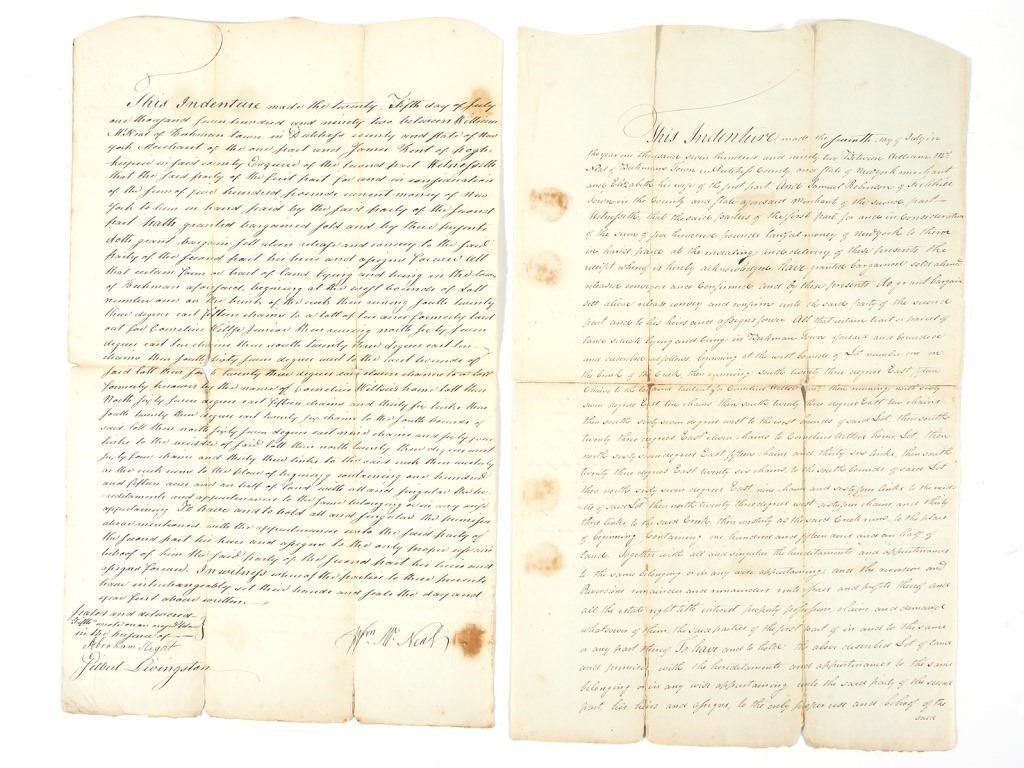 This Indenture made the twenty Fifth day of July
one thousand seven hundred and ninety two between William
McNeal of Beekman town in Dutchess county and state of New
york Merchant of the one part and James Kent of Pogh
keepsie in said county Esquire of the second part Witnesseth
that the said party of the first part for and in consideration
of the sum of five hundred pounds current money of New
York to him in hand paid by the said party of the second
part hath granted bargained sold and by these presents
doth grant bargain sell alien release and convey to the said
party of the second part his heirs and assigns forever All
that certain farm or tract of land lying and being in the town
of Beekman aforesaid, begining at the west bounds of Lott
number one on the bank of the creek then runing south twenty
three degrees east fifteen chains to a lott of ten acres formerly laid
out for Cornelius Junior then runing north sixty seven
degrees east ten chains then south twenty three degrees east ten
chains then south sixty seven degrees west to the west bounds of
said lott then south twenty three degrees east eleven chains to a lott
formerly known by the name of Cornelius home lott then
North sixty seven degrees east fifteen chains and thirty six links then
south twenty three degrees east twenty six chains to the south bounds of
said lott then north sixty seven degrees east nine chains and sixty four
links to the middle of said lott then north twenty three degrees west
sixty four chains and thirty three links to the said creek then westerly
as the creek runs to the place of begining containing one hundred
and fifteen acres and an half of land with all and singular the he
reditaments and appurtenances to the same belonging or in any wise
appertaining To have and to hold all and singular the premises
above mentioned with the appurtenances unto the said party of
the second part his heirs and assigns to the only proper use and
behoof of him the said party of the second part his heirs and
assigns forever. In witness whereof the parties to these presents
have interchangeably set their hands and seals the day and
year first above written.
Sealed and delivered
in the presence of
Abraham
Gilbert Livingston
Wm. Mc. Neal
This Indenture made the seventh day of July in
the year one thousand seven hundred and ninety two Between William Mc.
Neal of Beekmans Town in Dutchess County and State of New York merchant
and Elizabeth his wife of the first part And Samuel Robinson of
Town in the County and State aforesaid Merchant of the second part
Witnesseth, that the said parties of the first part for and in Consideration
of the sum of five hundred pounds lawful money of New York to them
in hand paid at the ensealing and delivery of these presents the
receipt whereof is hereby acknowledged, have granted bargained sold aliened
released conveyed and confirmed and by these presents do grant bargain
sell alien release convey and confirm unto the said party of the second
part and to his heirs and assigns forever All that certain tract or parcel of
land situate lying and being in Beekman Town aforesaid and bounded
and described as follows, begining at the west bounds of Lot number one on
the bank of the Creek, then running South twenty three degrees East fifteen
Chains to the ten acres laid out for Cornelius then running north sixty
seven degrees East ten chains then south twenty three degrees East ten chains
then south sixty seven degrees west to the west bounds of said Lot, then south
twenty three degrees East eleven chains to Cornelius home Lot then
north sixty seven degrees East fifteen chains and thirty six links, then south
twenty three degrees East twenty six chains, to the south bounds of said Lot
then north sixty seven degrees East, nine chains and sixty four links to the midd
le of said Lot then north twenty three degrees west sixty four chains and thirty
three links to the said Creek, then westerly as the said Creek runs, to the place
of begining Containing one hundred and fifteen acres and an half of
land. Together with all and singular the hereditaments and appurtenances
to the same belonging or in any wise appertaining, and the reversion and
Reversions remainder and remainders rents issues and profits thereof and
all the estate right title interest property possession, claim and demand
whatsoever of them the said parties of the first part of in and to the same
or any part thereof. To have and to hold the above described Lot of land
and premises, with the hereditaments and appurtenances to the same
belonging or in any wise appertaining unto the said party of the second
part his heirs and assigns, to the only proper use and behoof of the
said